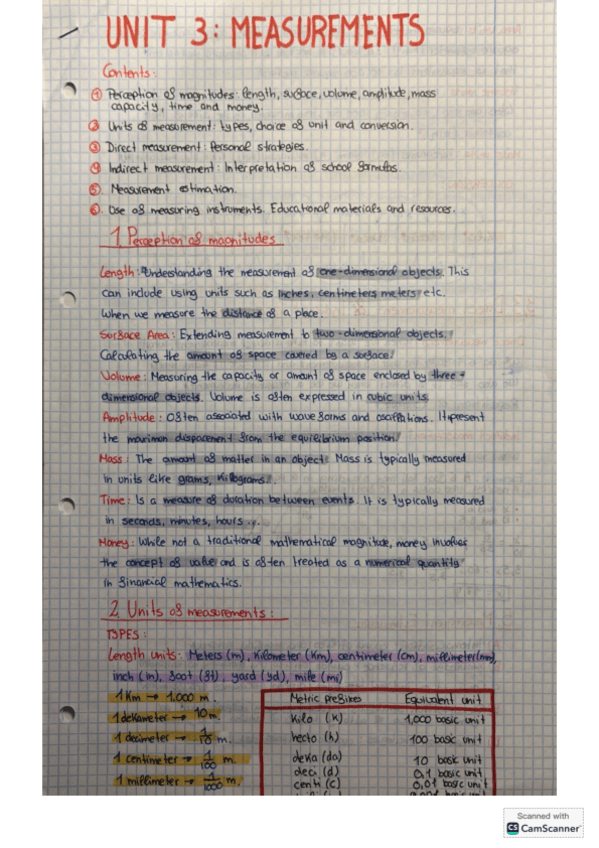 UNIT 3: MEASUREMENTS
Contents:
1 Perception of magnitudes: length, surface, volume, amplitude, mass
capacity, time and money.
2 Units of measurement: types, choice of unit and conversion.
3 Direct measurement: Personal strategies.
4 Indirect measurement: Interpretation of school formulas.
5 Measurement estimation.
6 Use of measuring instruments. Educational materials and resources.
1 Perception of magnitudes
Length: Understanding the measurement of one-dimensional objects. This
can include using units such as inches, centimeters meters, etc.
When we measure the distance of a place.
Surface Area: Extending measurement to two-dimensional objects.
Calculating the amount of space covered by a surface.
Volume: Measuring the capacity or amount of space enclosed by three-
dimensional objects. Volume is often expressed in cubic units.
Amplitude: Often associated with wave forms and oscillations. It present
the maximan dispacement from the equilibrium position.
Mass: The amount of matter in an object. Mass is typically measured
in units like grams, Kilograms.
Time: Is a measure of duration between events. It is typically measured
in seconds, minutes, hours...
Money: While not a traditional mathematical magnitude, money involves
the concept of value and is often treated as a numerical quantity
in financial mathematics.
2. Units of measurements:
TYPES:
Length units: Meters (m), Kilometer (Km), centimeter (cm), millimeter (mm),
inch (in), foot (ft), yard (yd), mile (mi)
1 Km → 1.000 m.
1 dekameter → 10 m.
1 decimeter → 1/10 m.
1 centimeter → 1/100 m.
1 millimeter → 1/1000 m.
Metric prefixes Equivalent unit
Kilo (k) 1,000 basic unit
hecto (h) 100 basic unit
deka (da) 10 basic unit
deci (d) 0,1 basic unit
centi (c) 0,01 basic unit
Scanned with
CS CamScanner